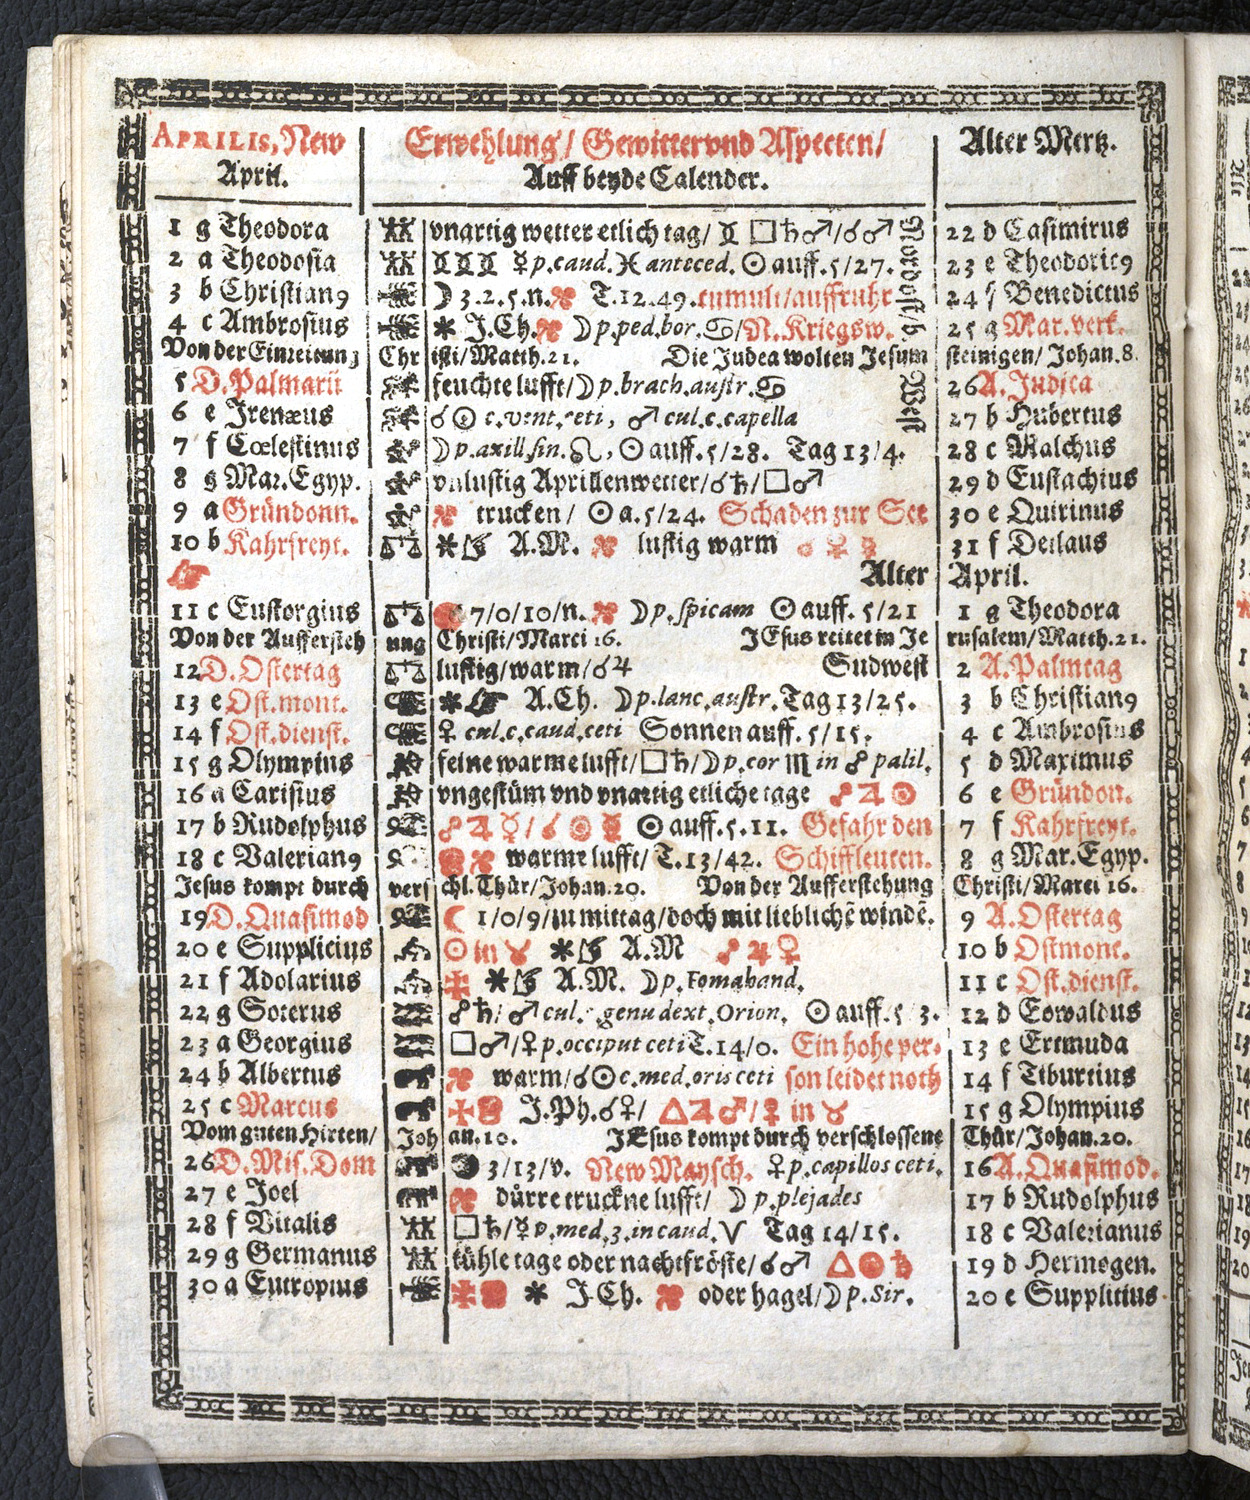 APRILIS, New Erwehlung/ Gewitter vnd Aspecten/ Alter Mertz.
April. Auff beyde Calender.
1 g Theodora vnartig wetter etlich tag/ ♊ □♄♂/☌♂ 22 d Casimirus
2 a Theodosia ♊♊♊ ☿ p.caud.♓ anteced. ☉auff.5/27. 23 e Theodoric9
3 b Christian9 ☽3.2.5.n. T.12.49. tumult/auffruhr 24 f Benedictus
4 c Ambrosius ✱ J.Ch. ☽p.ped.bor.♋/N.Kriegsw. 25 g Mar.verk.
Von der Einreitung Christi/Matth.21. Die Judea wolten Jesum steinigen/ Johan.8.
5 D.Palmarū feuchte lufft/☽p.brach.austr.♋ 26 A.Judica
6 e Irenæus ☌☉ c.vent.ceti, ♂ cul.c.capella 27 b Hubertus
7 f Cœlestinus ☽p.axill.sin.♌, ☉auff.5/28. Tag 13/4. 28 c Malchus
8 g Mar.Egyp. vnlustig Aprillenwetter/☌♄/□♂ 29 d Eustachius
9 a Gründonn. trucken/ ☉a.5/24. Schaden zur See 30 e Quirinus
10 b Kahrfreyt. ✱ A.M. lustig warm ☌♀☿ 31 f Detlaus
Alter April.
11 c Eustorgius ♎ 7/0/10/n. ☽p.spicam ☉auff.5/21 1 g Theodora
Von der Aufferstehung Christi/Marci 16. JEsus reitet in Jerusalem/Matth.21.
12 D.Ostertag ♎ lustig/warm/☌♃ Sudwest 2 A.Palmtag
13 e Ost.mont. ✱ A.Ch. ☽p.lanc.austr.Tag 13/25. 3 b Christian9
14 f Ost.dienst. ♀ cul.c.caud.ceti Sonnen auff.5/15. 4 c Ambrosius
15 g Olympius feine warme lufft/□♄/☽p.cor ♏ in ☍ palil. 5 d Maximus
16 a Carisius vngestüm vnd vnartig etliche tage ☍♃☉ 6 e Gründon.
17 b Rudolphus ☍♃☿/☌☉☿ ☉auff.5.11. Gefahr den 7 f Kahrfreyt.
18 c Valerian9 warme lufft/ T.13/42. Schiffleuten. 8 g Mar.Egyp.
Jesus kompt durch verschl.Thür/Johan.20. Von der Aufferstehung Christi/Marci 16.
19 D.Quasimod ☾ 1/0/9/zu mittag/doch mit lieblichē windē. 9 A.Ostertag
20 e Supplicius ☉ in ♉ ✱ A.M ☍♃♀ 10 b Ostmont.
21 f Adolarius ✱ A.M. ☽p.Fomahand. 11 c Ost.dienst.
22 g Soterus ☍♄/♂cul. genu dext.Orion. ☉auff.5 3. 12 d Eowaldus
23 a Georgius □♂/♀p.occiput ceti T.14/0. Ein hohe per- 13 e Ertmuda
24 b Albertus warm/☌☉c.med.oris ceti son leidet noth 14 f Tiburtius
25 c Marcus J.Ph.☌♀/ △♃♂/♀ in ♉ 15 g Olympius
Vom guten Hirten/ Johan.10. JEsus kompt durch verschlossene Thür/Johan.20.
26 D.Mis.Dom 3/13/v. New Maysch. ♀p.capillos ceti. 16 A.Quasimod.
27 e Joel dürre truckne lufft/ ☽ p.plejades 17 b Rudolphus
28 f Vitalis □♄/☿p.med.3.in caud.♈ Tag 14/15. 18 c Valerianus
29 g Germanus kühle tage oder nachtfröste/☌♂ △☉♄ 19 d Hermogen.
30 a Eutropius ✱ J.Ch. oder hagel/☽p.Sir. 20 e Supplitius